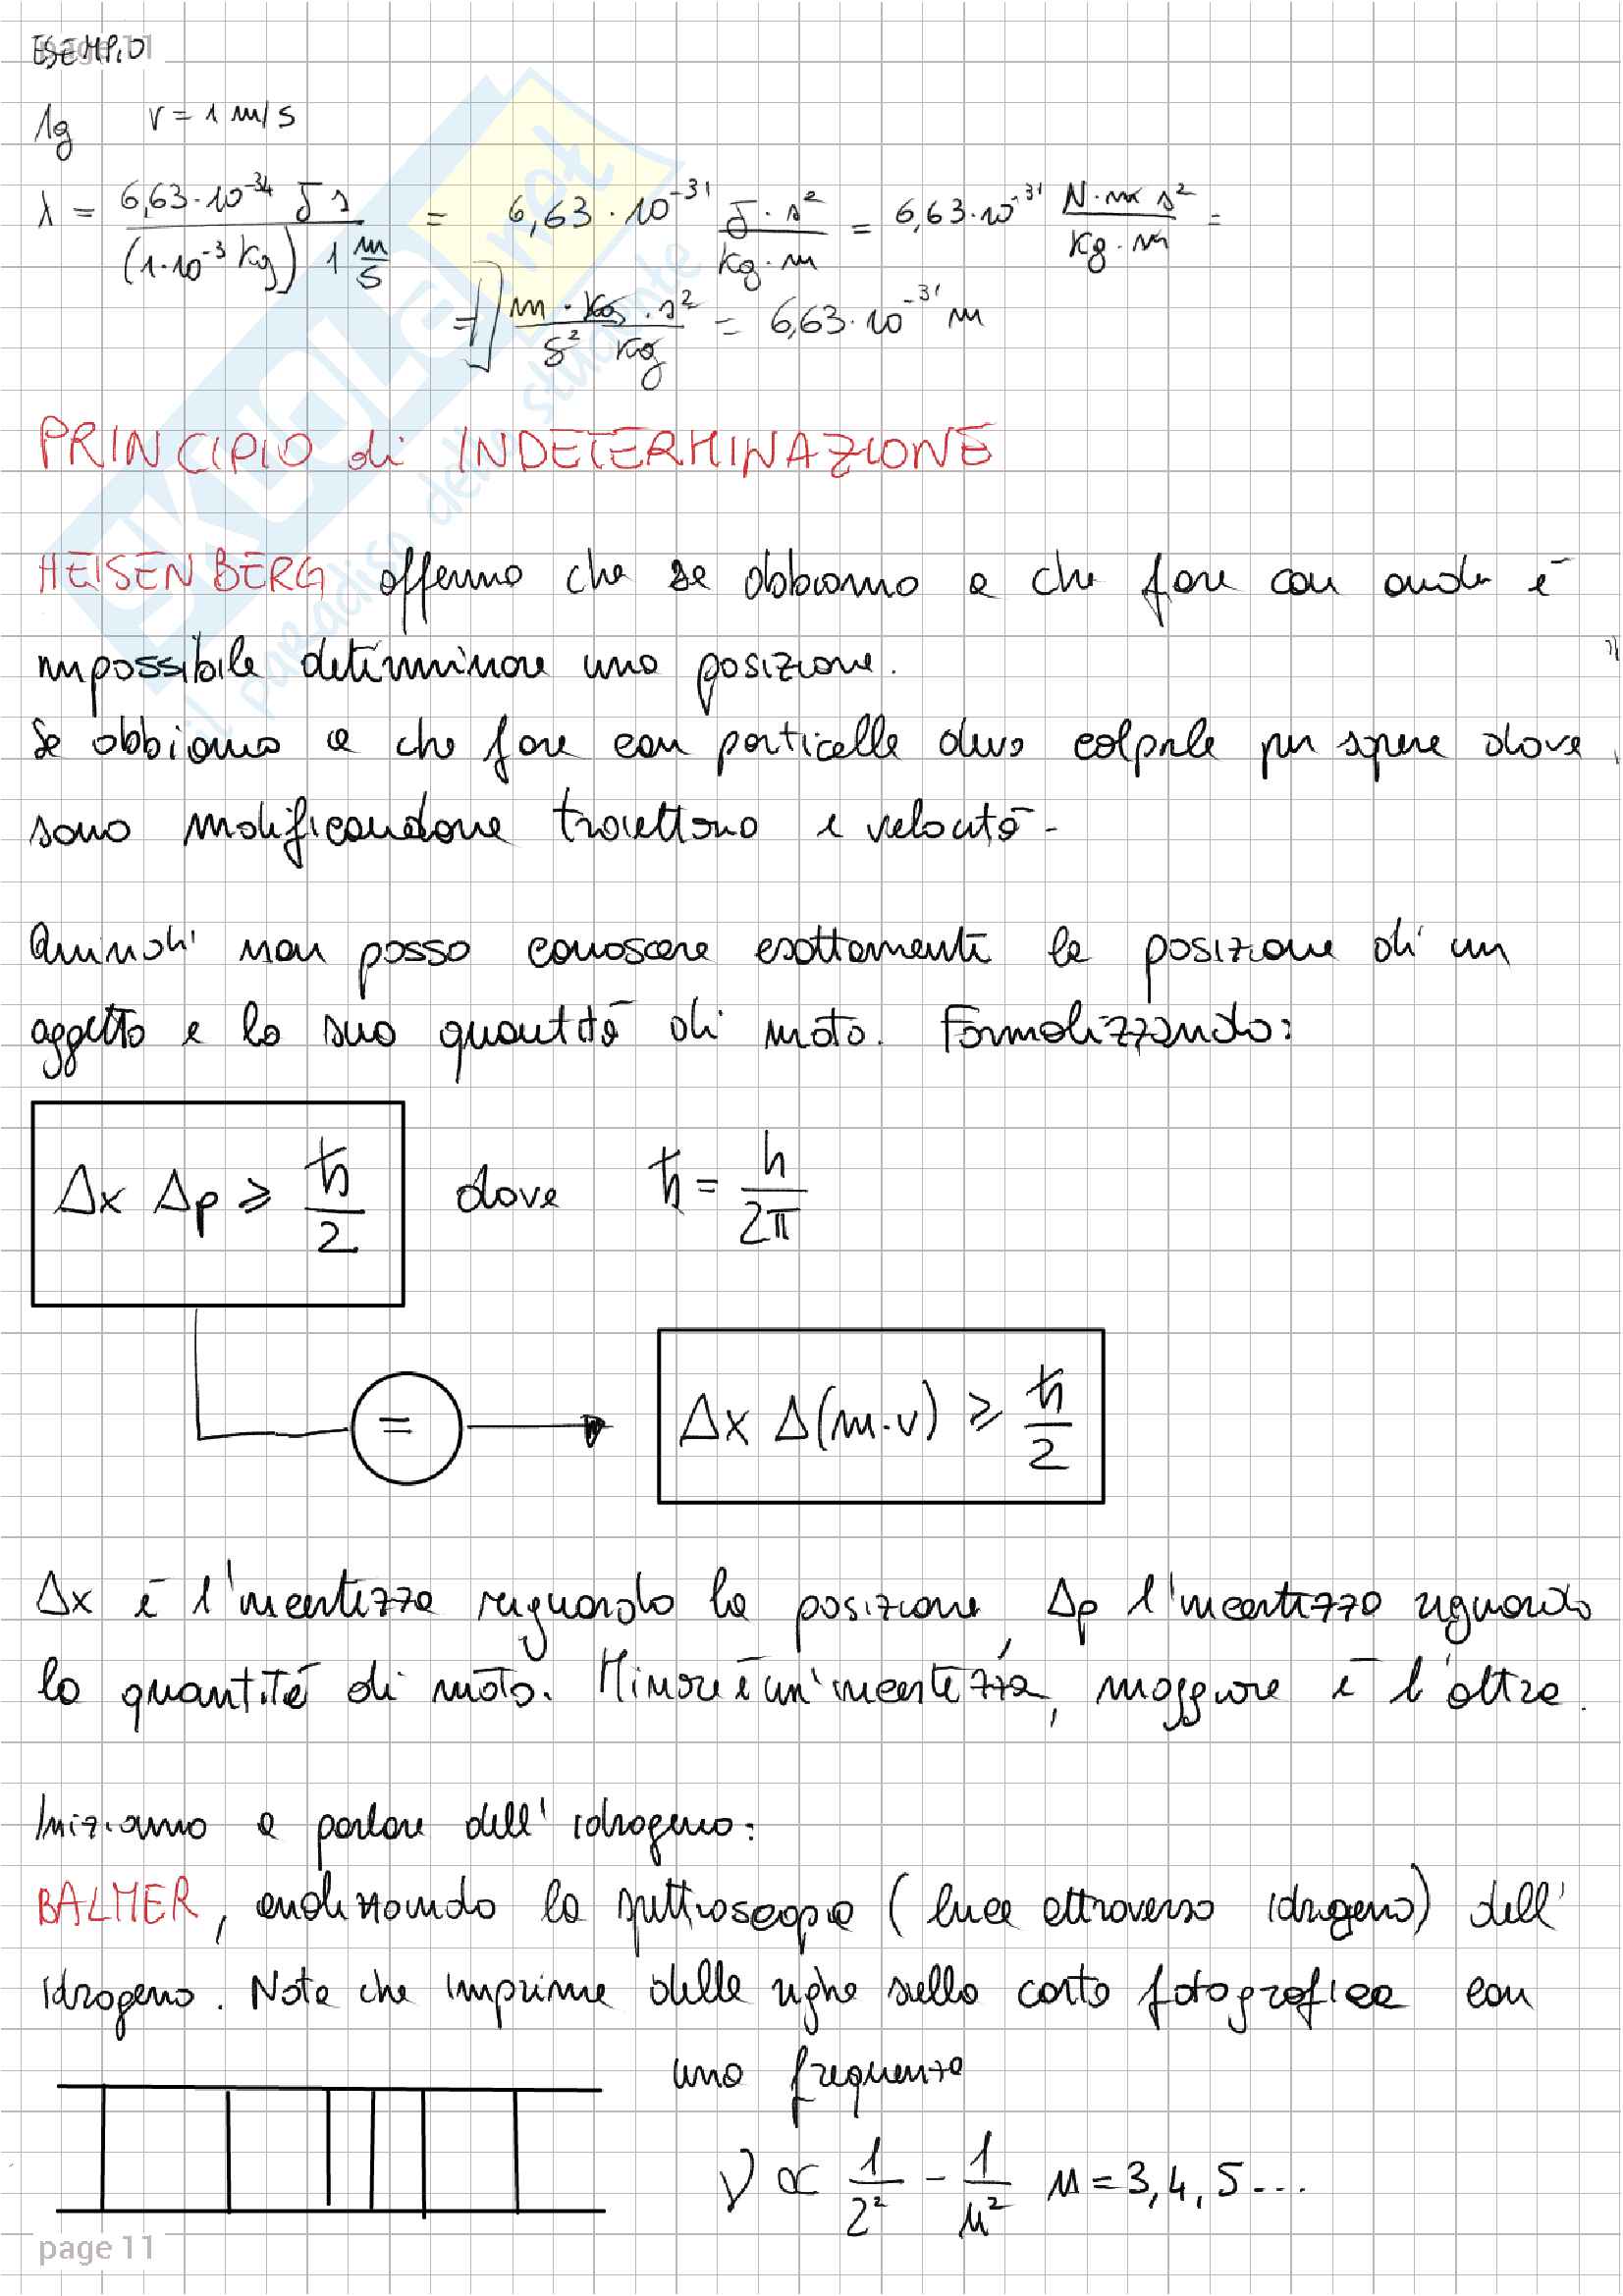 page 11
ESEMPIO
1g v = 1 m/s
λ = 6,63·10⁻³⁴ J s / (1·10⁻³ kg) 1 m/s = 6,63·10⁻³¹ J·s² / kg·m = 6,63·10⁻³¹ N·m s² / kg·m =
= m·kg·s² / s² kg = 6,63·10⁻³¹ m
PRINCIPIO di INDETERMINAZIONE
HEISENBERG afferma che se abbiamo a che fare con onde è
impossibile determinare una posizione.
Se abbiamo a che fare con particelle devo colpirle per sapere dove
sono modificandone traiettoria e velocità.
Quindi non posso conoscere esattamente la posizione di un
oggetto e la sua quantità di moto. Formalizzando:
Δx Δp ⩾ ħ/2 dove ħ = h/2π
= Δx Δ(m·v) ⩾ ħ/2
Δx è l'incertezza riguardo la posizione, Δp l'incertezza riguardo
la quantità di moto. Minore è un'incertezza, maggiore è l'altra.
Iniziamo a parlare dell'idrogeno:
BALMER, analizzando la spettroscopia (luce attraverso idrogeno) dell'
idrogeno. Nota che imprime delle righe sulla carta fotografica con
una frequenza
ν ∝ 1/2² - 1/n² n = 3, 4, 5...
page 11
SKUOLA.net
il paradiso dello studente